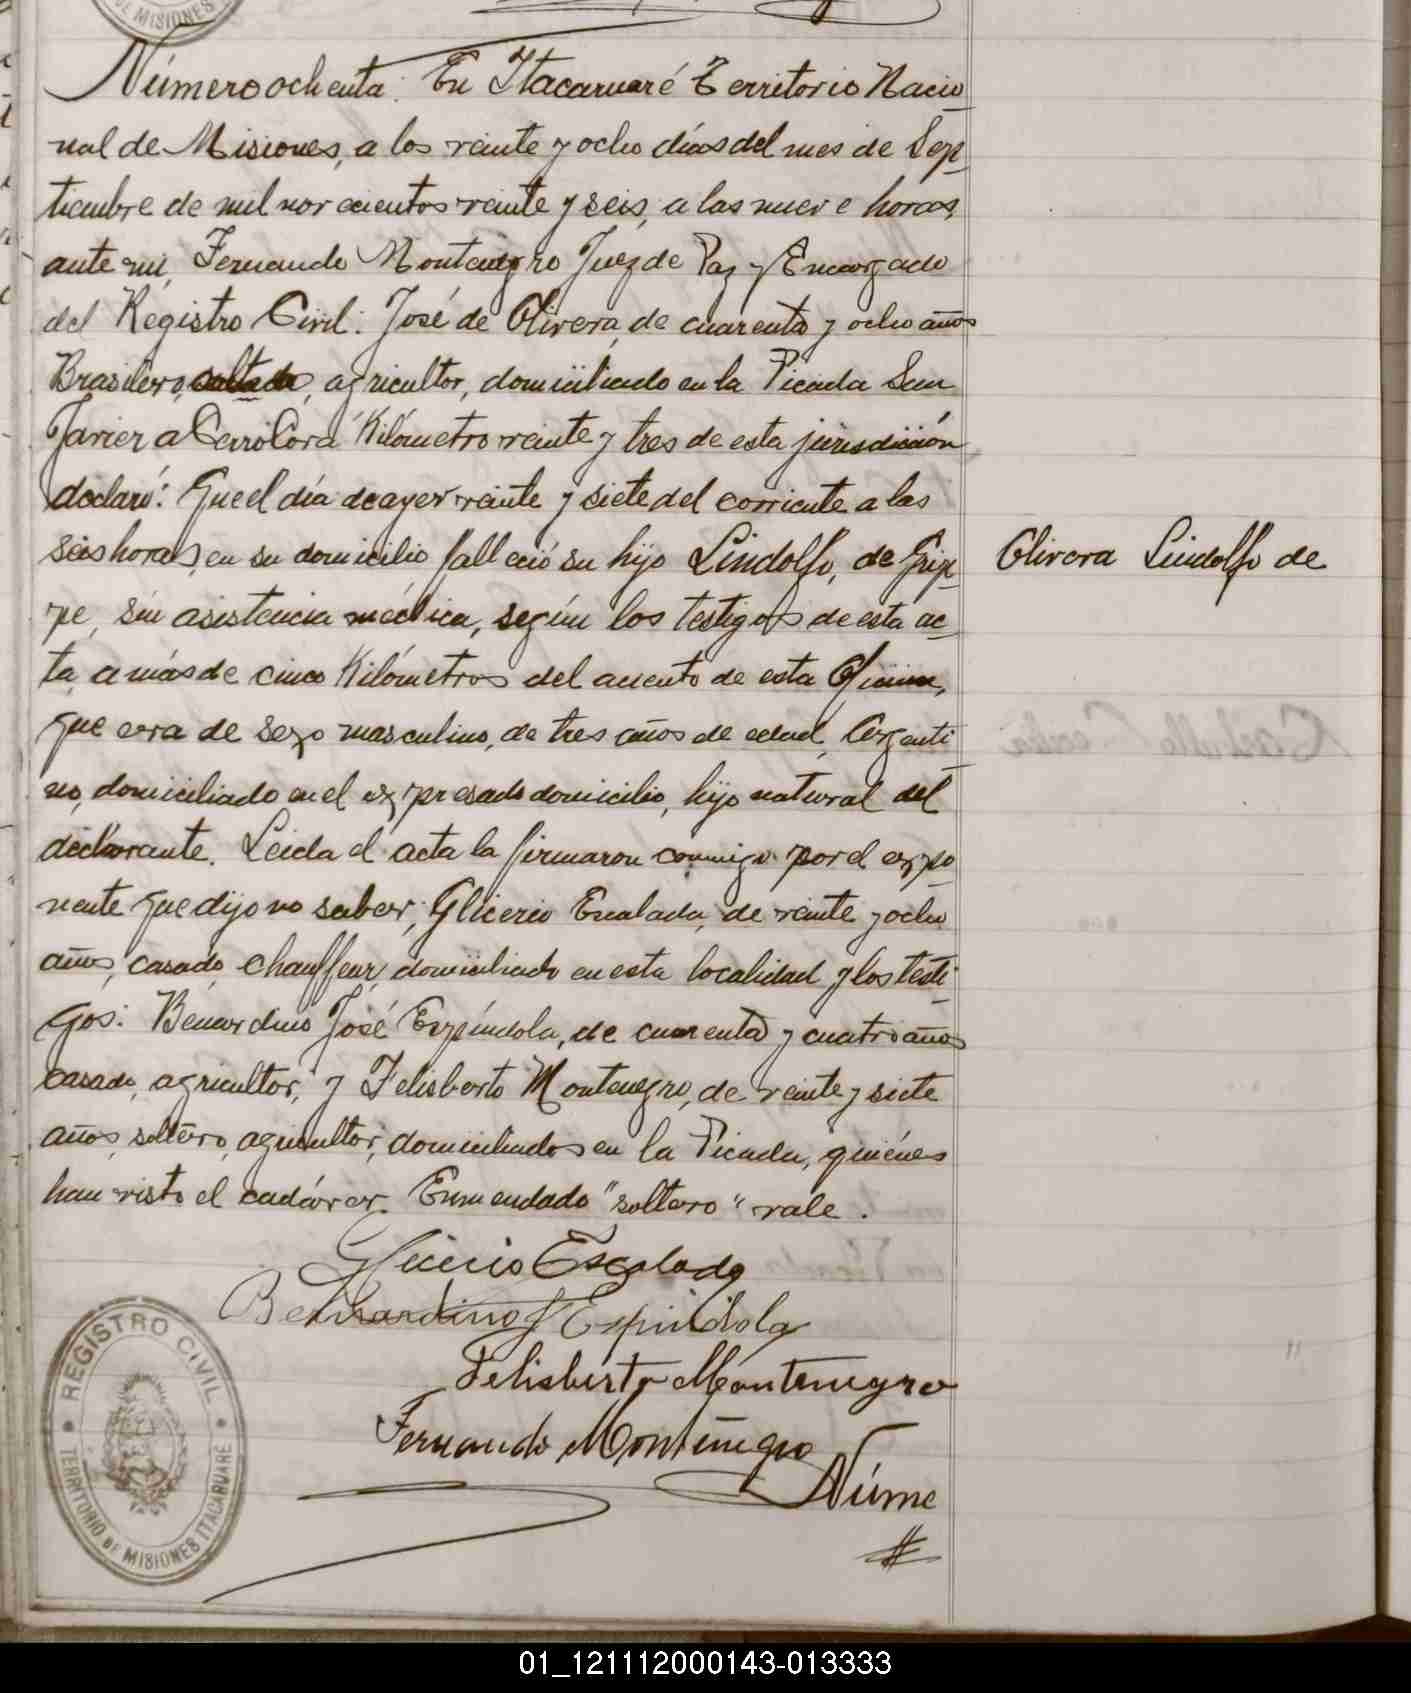 DE MISIONES
Número ochenta. En Itacaruaré Territorio Nacio
nal de Misiones, a los veinte y ocho días del mes de Sep-
tiembre de mil novecientos veinte y seis, a las nueve horas,
ante mí, Fernando Montenegro Juez de Paz y Encargado
del Registro Civil: José de Olivera, de cuarenta y ocho años
Brasilero, soltero, agricultor, domiciliado en la Picada San
Javier a Cerro Corá Kilómetro veinte y tres de esta jurisdicción
declaró: Que el día de ayer veinte y siete del corriente a las
seis horas, en su domicilio falleció su hijo Lindolfo, de Grip-
Olivera Lindolfo de
pe, sin asistencia médica, según los testigos de esta ac-
ta, a más de cinco Kilómetros del asiento de esta Oficina,
que era de sexo masculino, de tres años de edad, Argenti-
no, domiciliado en el expresado domicilio, hijo natural del
declarante. Leida el acta la firmaron conmigo por el expo-
nente que dijo no saber, Glicerio Escalada, de veinte y ocho
años, casado, chauffeur, domiciliado en esta localidad y los testi-
gos: Bernardino José Espíndola, de cuarenta y cuatro años
casado, agricultor, y Felisberto Montenegro, de veinte y siete
años, soltero, agricultor, domiciliados en la Picada, quiénes
han visto el cadáver. Enmendado "soltero" vale.
Glicerio Escalada
Bernardino J Espindola
Felisberto Montenegro
Fernando Montenegro
Núme
REGISTRO CIVIL
TERRITORIO DE MISIONES ITACARUARÉ
01_121112000143-013333